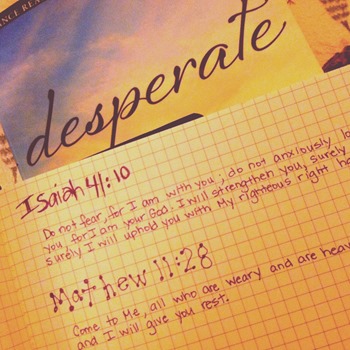 ANCE REA
desperate
Isaiah 41:10
Do not fear, for I am with you; do not anxiously lo
you, for I am your God. I will strengthen you, surely
surely I will uphold you with My righteous right ha
Mathew 11:28
Come to Me, all who are weary and are heav
and I will give you rest.